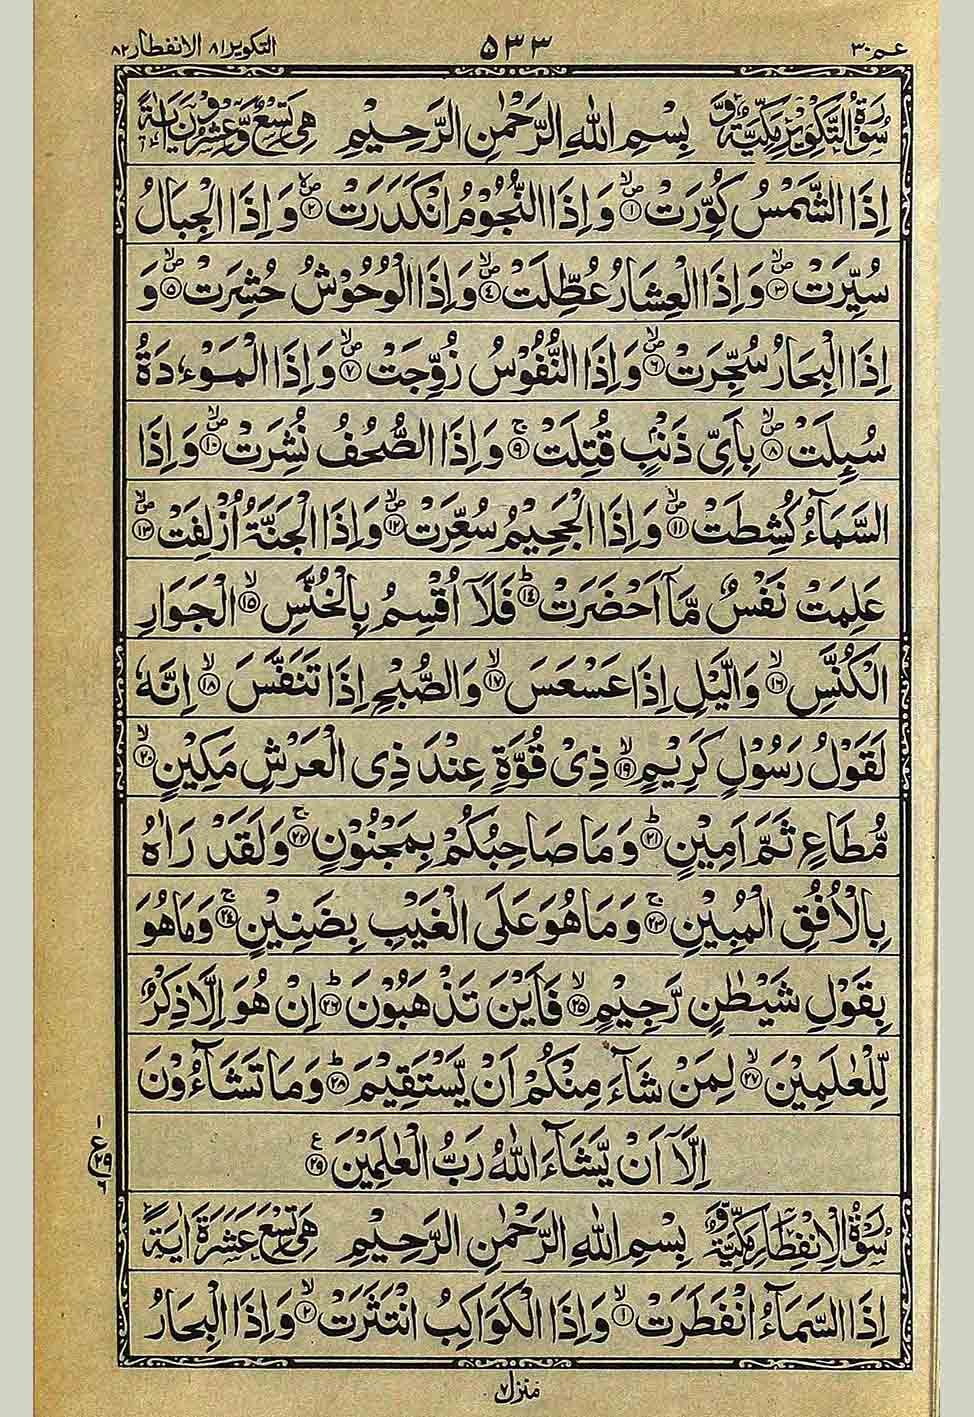 عم ٣٠ ٥٣٣ التكوير ٨١ الانفطار ٨٢
سُوْرَةُ التَّكْوِيْرِ مَكِّيَّةٌ وَّ بِسْمِ اللهِ الرَّحْمٰنِ الرَّحِيْمِ هِيَ تِسْعٌ وَّعِشْرُوْنَ اٰيَةً
اِذَا الشَّمْسُ كُوِّرَتْ ۙ۝١ وَاِذَا النُّجُوْمُ انْكَدَرَتْ ۙ۝٢ وَاِذَا الْجِبَالُ
سُيِّرَتْ ۙ۝٣ وَاِذَا الْعِشَارُ عُطِّلَتْ ۙ۝٤ وَاِذَا الْوُحُوْشُ حُشِرَتْ ۙ۝٥ وَ
اِذَا الْبِحَارُ سُجِّرَتْ ۙ۝٦ وَاِذَا النُّفُوْسُ زُوِّجَتْ ۙ۝٧ وَاِذَا الْمَوْءٗدَةُ
سُىِٕلَتْ ۙ۝٨ بِاَىِّ ذَنْۢبٍ قُتِلَتْ ۚ۝٩ وَاِذَا الصُّحُفُ نُشِرَتْ ۙ۝١٠ وَاِذَا
السَّمَآءُ كُشِطَتْ ۙ۝١١ وَاِذَا الْجَحِيْمُ سُعِّرَتْ ۙ۝١٢ وَاِذَا الْجَنَّةُ اُزْلِفَتْ ۙ۝١٣
عَلِمَتْ نَفْسٌ مَّاۤ اَحْضَرَتْ ؕ۝١٤ فَلَاۤ اُقْسِمُ بِالْخُنَّسِ ۙ۝١٥ الْجَوَارِ
الْكُنَّسِ ۙ۝١٦ وَالَّيْلِ اِذَا عَسْعَسَ ۙ۝١٧ وَالصُّبْحِ اِذَا تَنَفَّسَ ۙ۝١٨ اِنَّهٗ
لَقَوْلُ رَسُوْلٍ كَرِيْمٍ ۙ۝١٩ ذِىْ قُوَّةٍ عِنْدَ ذِى الْعَرْشِ مَكِيْنٍ ۙ۝٢٠
مُّطَاعٍ ثَمَّ اَمِيْنٍ ؕ۝٢١ وَمَا صَاحِبُكُمْ بِمَجْنُوْنٍ ۚ۝٢٢ وَلَقَدْ رَاٰهُ
بِالْاُفُقِ الْمُبِيْنِ ۚ۝٢٣ وَمَا هُوَ عَلَى الْغَيْبِ بِضَنِيْنٍ ۚ۝٢٤ وَمَا هُوَ
بِقَوْلِ شَيْطٰنٍ رَّجِيْمٍ ۙ۝٢٥ فَاَيْنَ تَذْهَبُوْنَ ؕ۝٢٦ اِنْ هُوَ اِلَّا ذِكْرٌ
لِّلْعٰلَمِيْنَ ۙ۝٢٧ لِمَنْ شَآءَ مِنْكُمْ اَنْ يَّسْتَقِيْمَ ؕ۝٢٨ وَمَا تَشَآءُوْنَ
اِلَّاۤ اَنْ يَّشَآءَ اللهُ رَبُّ الْعٰلَمِيْنَ ۝٢٩
١ ع ٢٩ ٦
سُوْرَةُ الْاِنْفِطَارِ مَكِّيَّةٌ وَّ بِسْمِ اللهِ الرَّحْمٰنِ الرَّحِيْمِ هِيَ تِسْعَ عَشَرَةَ اٰيَةً
اِذَا السَّمَآءُ انْفَطَرَتْ ۙ۝١ وَاِذَا الْكَوَاكِبُ انْتَثَرَتْ ۙ۝٢ وَاِذَا الْبِحَارُ
منزل ٧